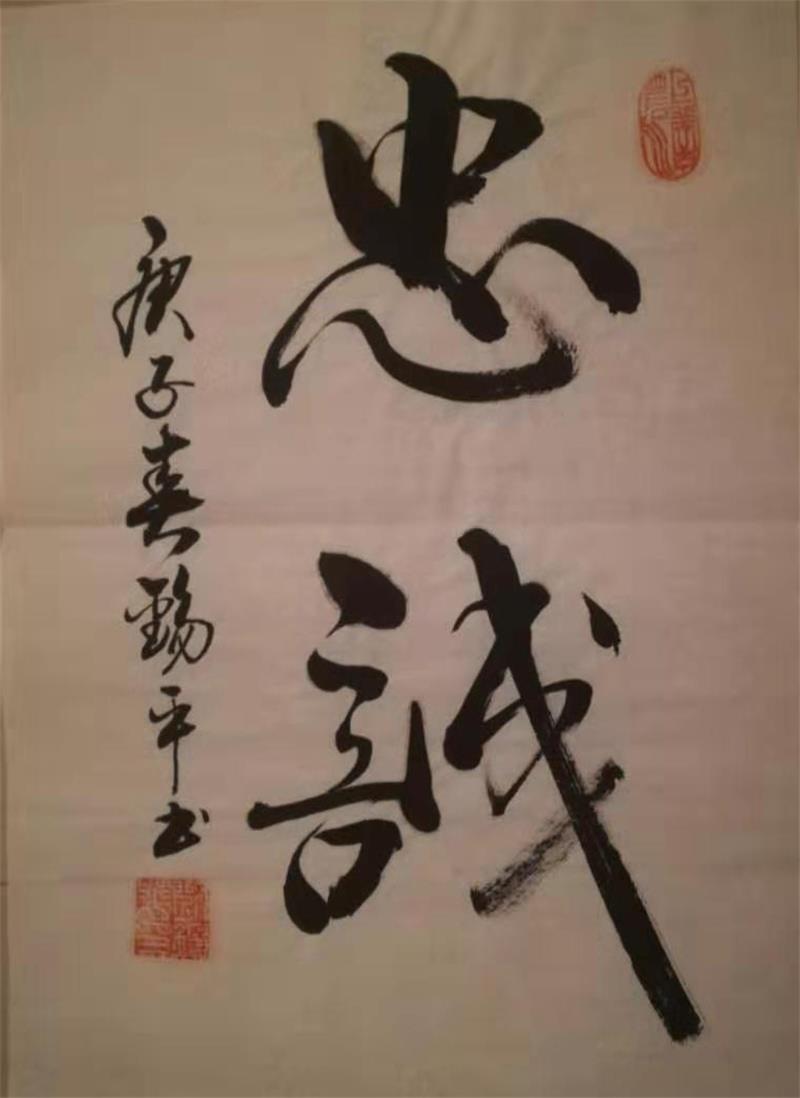 忠誠
庚子春錫平书